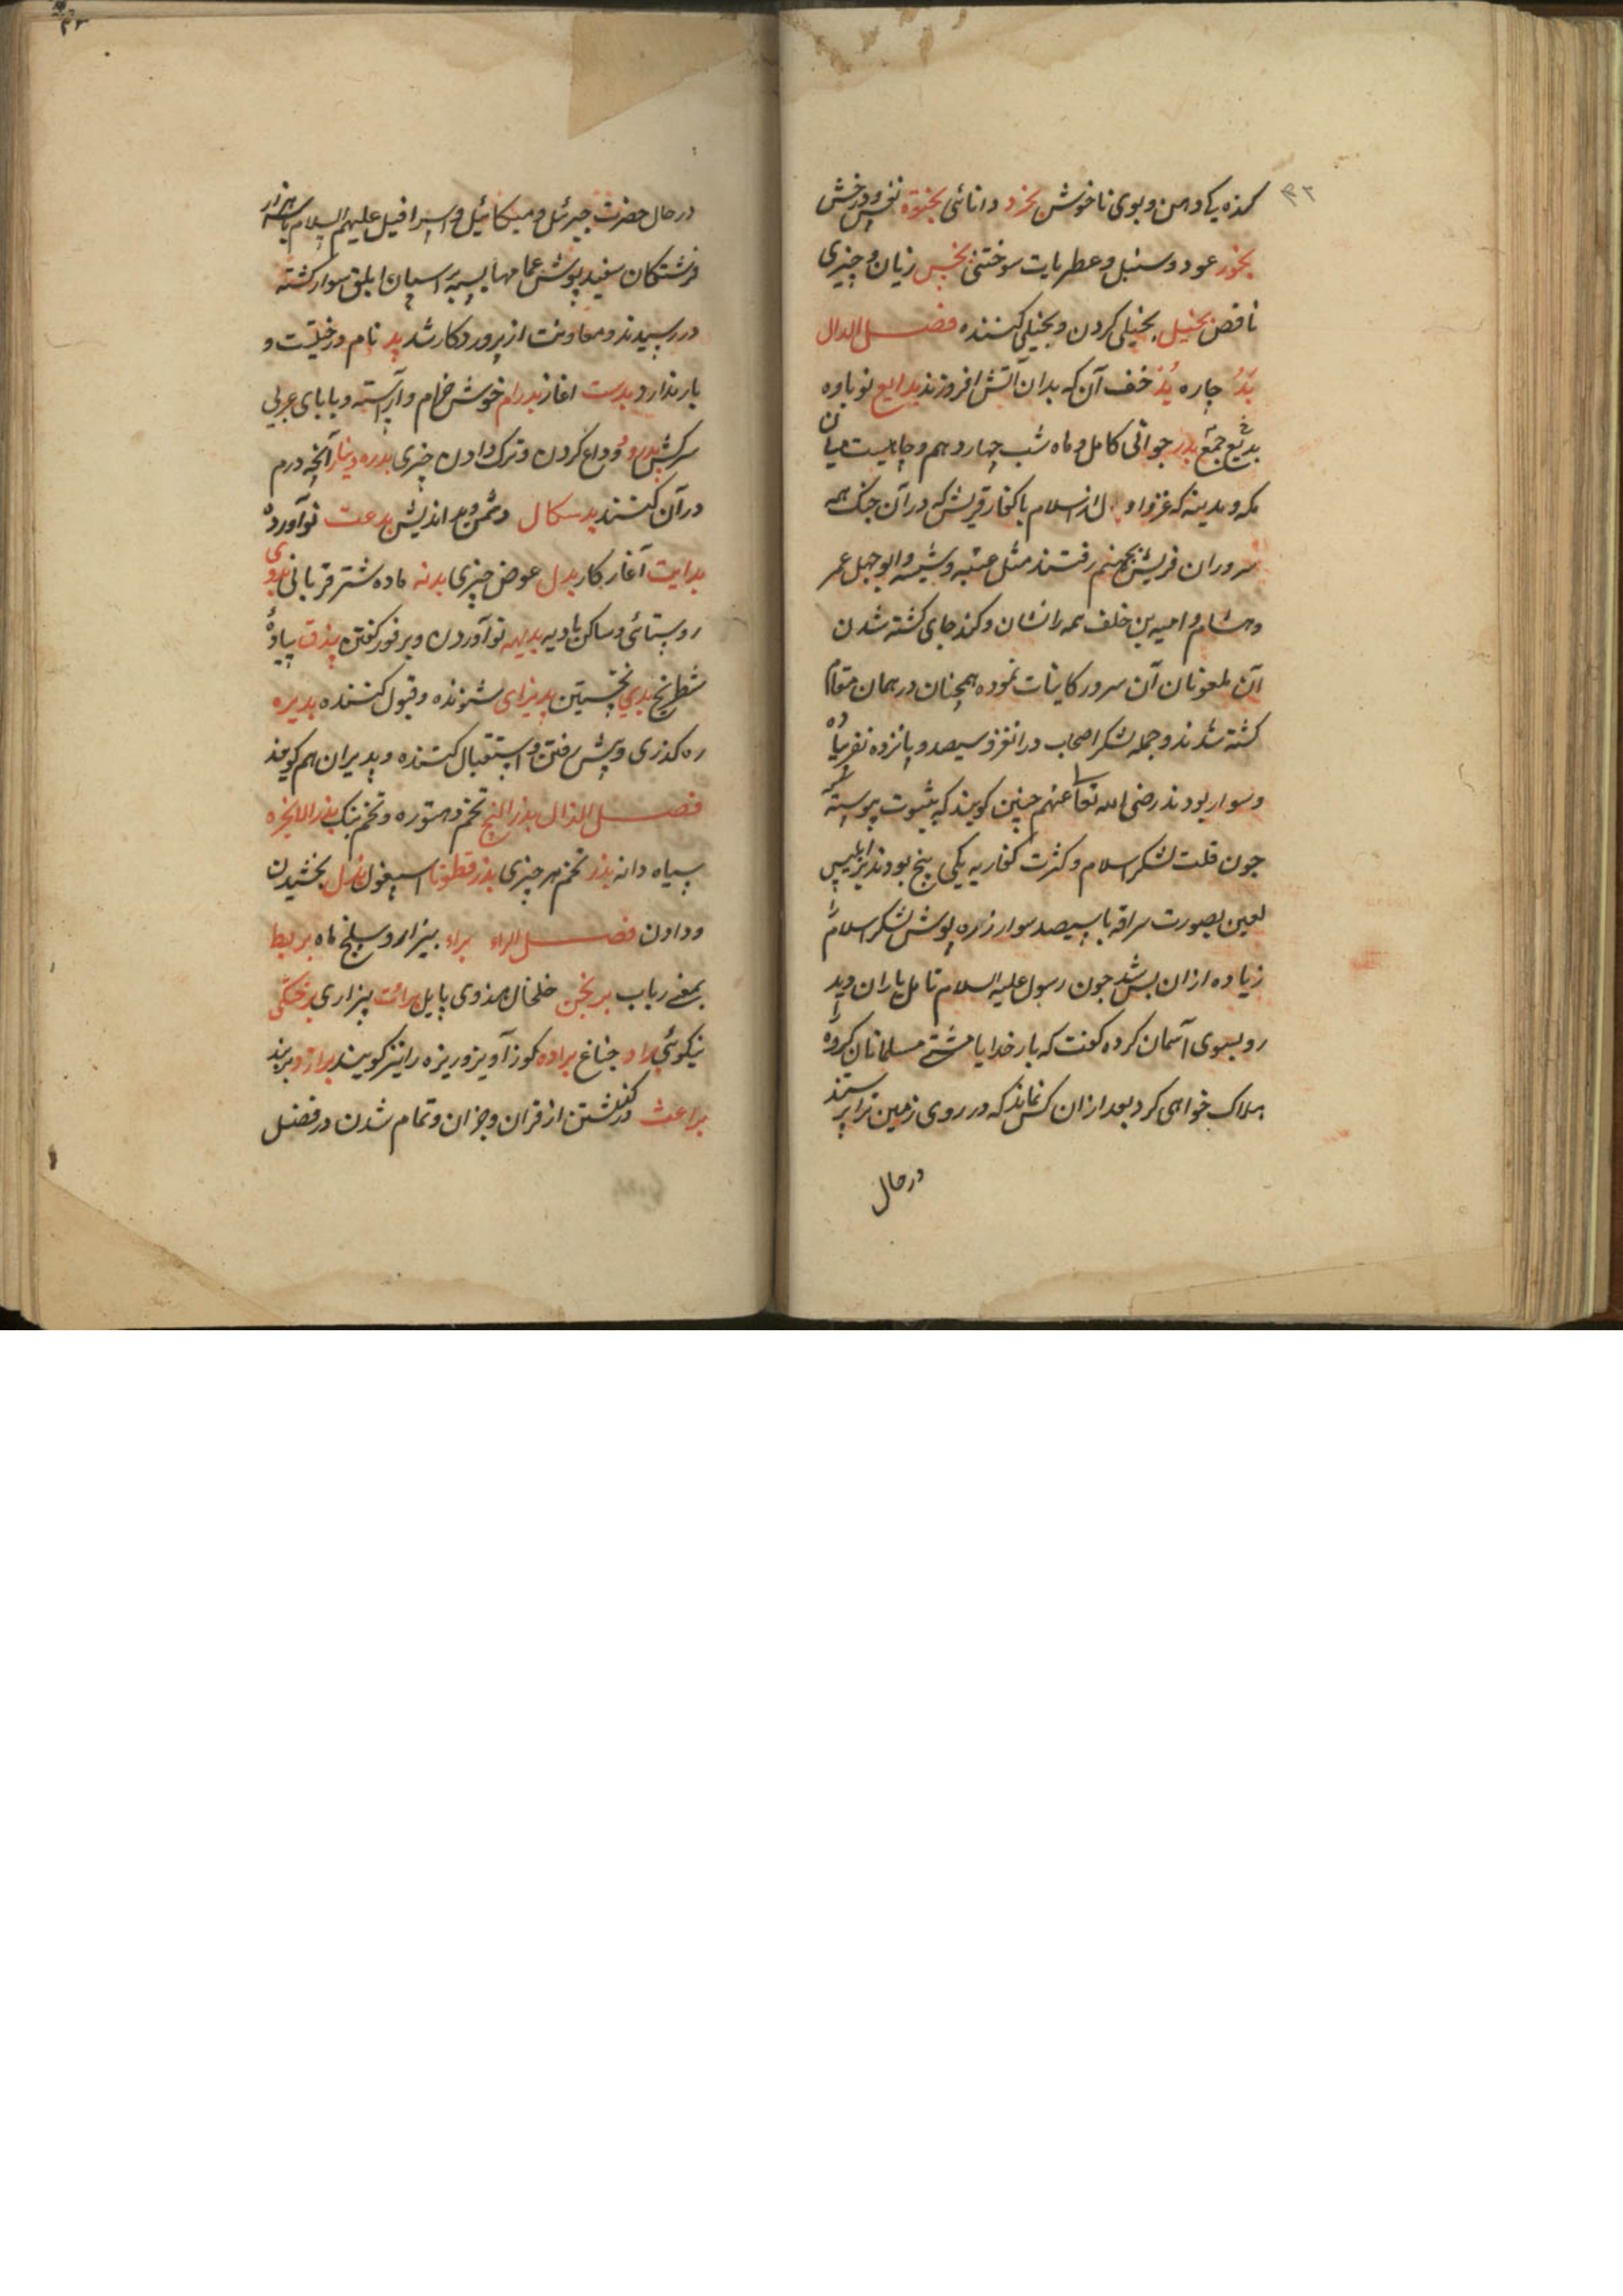 کنده یکدهن و بوی ناخوش بخرد دانائی بخنوه نفس و درخش
بخور عود و سنبل و عطریات سوختنی بخس زیان و چیزی
ناقص بخیل بخیلی کردن و بخیلی کننده فصل الدال
بَدُ چاره بُد خف آن که بدان آتش افروزند بدایع نوباوه
بدیع جمع بدر جوانی کامل و ماه شب چهاردهم و چاهیست میان
مکه و مدینه که غزوا اول اسلام با کفار قریش که در آن جنگ همه
سروران قریش بجهنم رفتند مثل عتبه و شیبه و ابو جهل عمر
وهشام و امیه بن خلف همه رانشان وکند جای کشته شدن
آن ملعونان آن سرور کاینات نموده همچنان در همان مقام
کشته شدند و جمله لشکر اصحاب در انغزو سیصد و پانزده نفر پیاده
و سوار بودند رضی الله تعا عنهم چنین کویند که بثبوت پیوسته که
چون قلت لشکر اسلام و کثرت کفار به یکی پنج بودند نیز ابلیس
لعین بصورت سراقه با سیصد سوار زره پوش لشکر اسلام را
زیاده ازان بس شد چون رسول علیه السلام تامل یاران دید
رو بسوی آسمان کرده کفت که بار خدایا مشتی مسلمانان کرده را
هلاک خواهی کرد بعد ازان کس نماند که در روی زمین ترا پرستند
در حال
در حال حضرت جبرئیل و میکائیل و اسرافیل علیهم السلام با سه هزار
فرشتکان سفید پوش عمامها بسته بر اسپان ابلق سوار کشته
در رسیدند و معاونت از پروردکار شد بد نام درختیست و
بار ندارد بدست اغاز بدرام خوش خرام و آراسته و بابای عربی
سرکش بدرود وداع کردن و ترک دادن چیزی بدره دینار آنچه درم
در آن کنند بدسکال دشمن و بد اندیش بدعت نو آورده
بدایت آغاز کار بدل عوض چیزی بدنه ماده شتر قربانی بدوی
روستائی و ساکن بادیه بدیهه نو آوردن و بر فور کفتن بیذق پیاده
شطرنج بدی نخستین پذیرای شنونده و قبول کننده پذیره
ره کذری و پیش رفتن و استقبال کننده و پذیران هم کویند
فصل الذال بذر البنج تخم دهتوره و تخم بنک بذر الانجره
سیاه دانه بذر تخم هر چیزی بذر قطونا اسپغول بذل بخشیدن
و دادن فصل الراء براء بیزار و سلخ ماه بربط
بمعنی رباب برنجن خلخال هندوی پایل برائت بیزاری بر
نیکوئی براد جناغ براده کوز آویز و ریزه را نیز کویند براز و برند
براعت درکذشتن از قران و جزان و تمام شدن در فضل